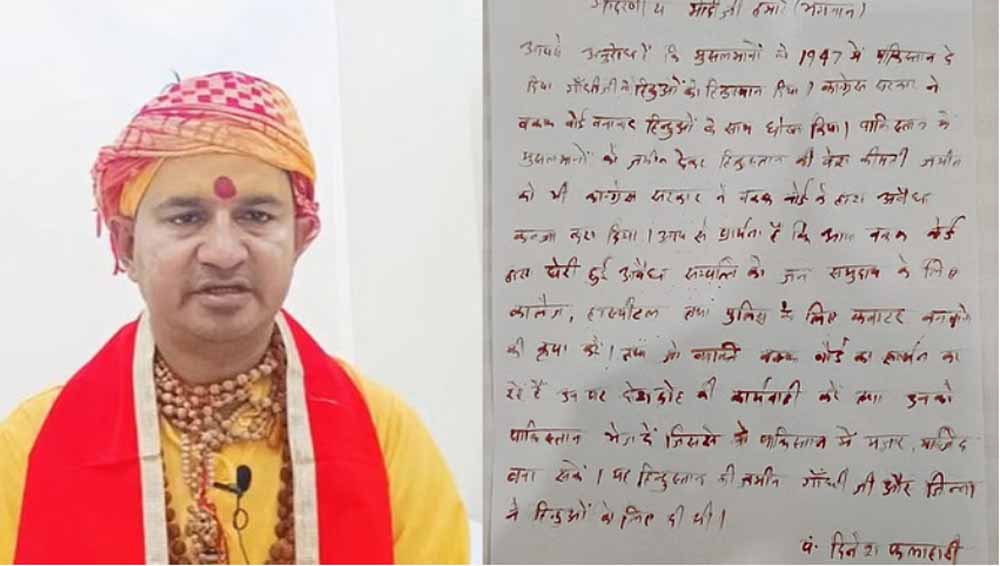 आदरणीय मोदी जी हमारे (भगवान)
आपसे अनुरोध है कि मुसलमानों को 1947 में पाकिस्तान दे
दिया गाँधी जी ने हिन्दुओं को हिन्दुस्थान दिया। कांग्रेस सरकार ने
वक्फ बोर्ड बनाकर हिन्दुओं के साथ धोखा किया। पाकिस्तान में
मुसलमानों को जमीन देकर हिन्दुस्तान की बेश कीमती जमीन
को भी कांग्रेस सरकार ने वक्फ बोर्ड के द्वारा अवैध
कब्जा करा दिया। आप से प्रार्थना है कि आप वक्फ बोर्ड
द्वारा घेरी हुई अवैध सम्पत्ति को जन समुदाय के लिए
कालेज, हास्पीटल तथा पुलिस के लिए क्वाटर बनवाने
की कृपा करें। तथा जो व्यक्ति वक्फ बोर्ड का समर्थन कर
रहे हैं उन पर देशद्रोह की कार्यवाही करें तथा उनको
पाकिस्तान भेज दें जिससे वो पाकिस्तान में मजार, मस्जिद
बना सकें। यह हिन्दुस्तान की जमीन गाँधी जी और जिन्ना
ने हिन्दुओं के लिए दी थी।
पं. दिनेश फलाहारी